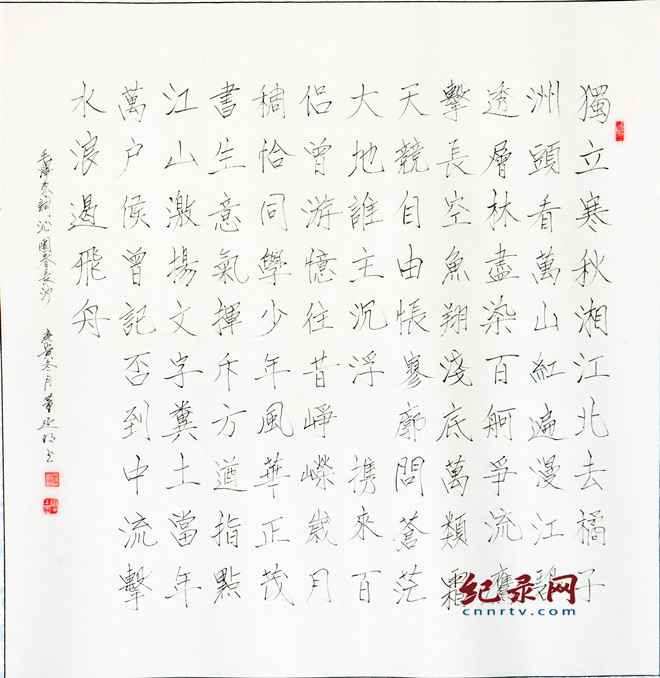 獨立寒秋湘江北去橘子
洲頭看萬山紅遍漫江碧
透層林盡染百舸爭流鷹
擊長空魚翔淺底萬類霜
天競自由悵寥廓問蒼茫
大地誰主沉浮 攜來百
侶曾游憶往昔崢嶸歲月
稠恰同學少年風華正茂
書生意氣揮斥方遒指點
江山激揚文字糞土當年
萬户侯曾記否到中流擊
水浪遏飛舟
毛澤东詞沁園春長沙 庚寅冬月董书
纪录网
cnnrtv.com